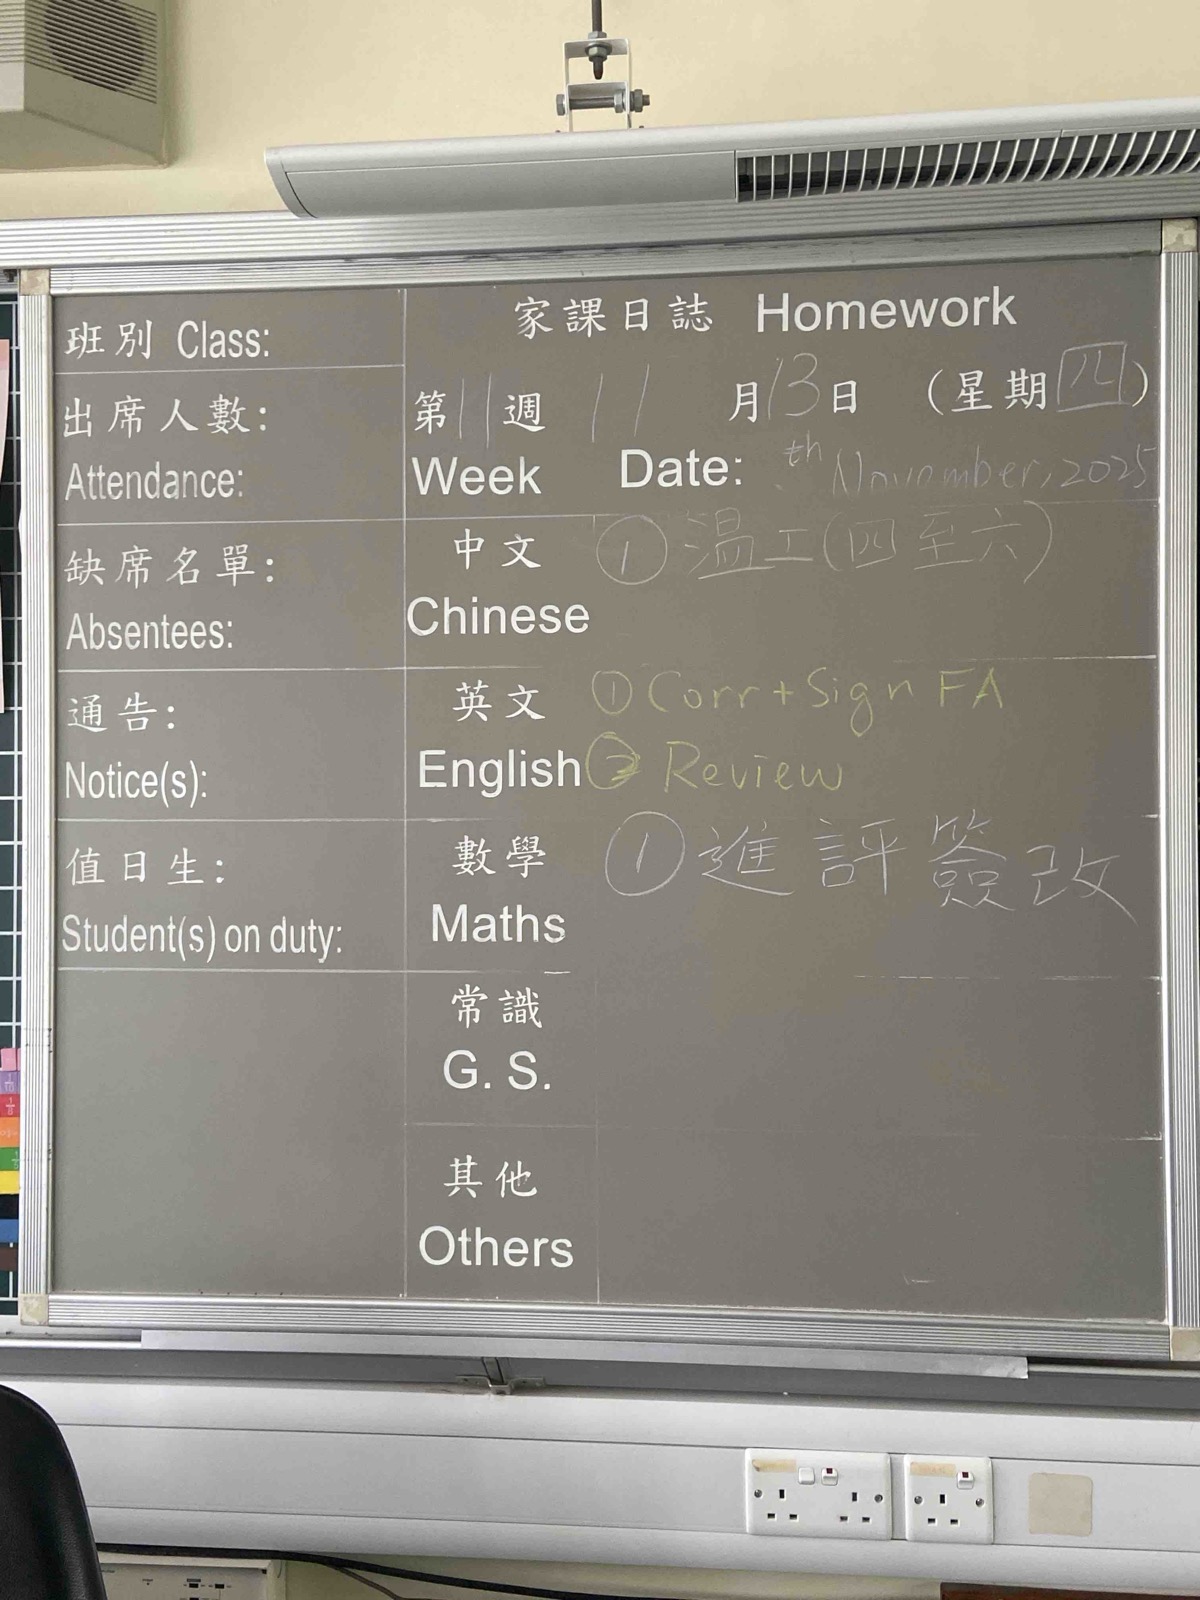 家課日誌 Homework
班別 Class:
出席人數:
Attendance:
第11週 11月13日 (星期四)
Week Date: th November, 2025
缺席名單:
Absentees:
中文 ① 溫工(四至六)
Chinese
通告:
Notice(s):
英文 ① Corr + Sign FA
English ② Review
值日生:
Student(s) on duty:
數學 ① 進評簽改
Maths
常識
G. S.
其他
Others